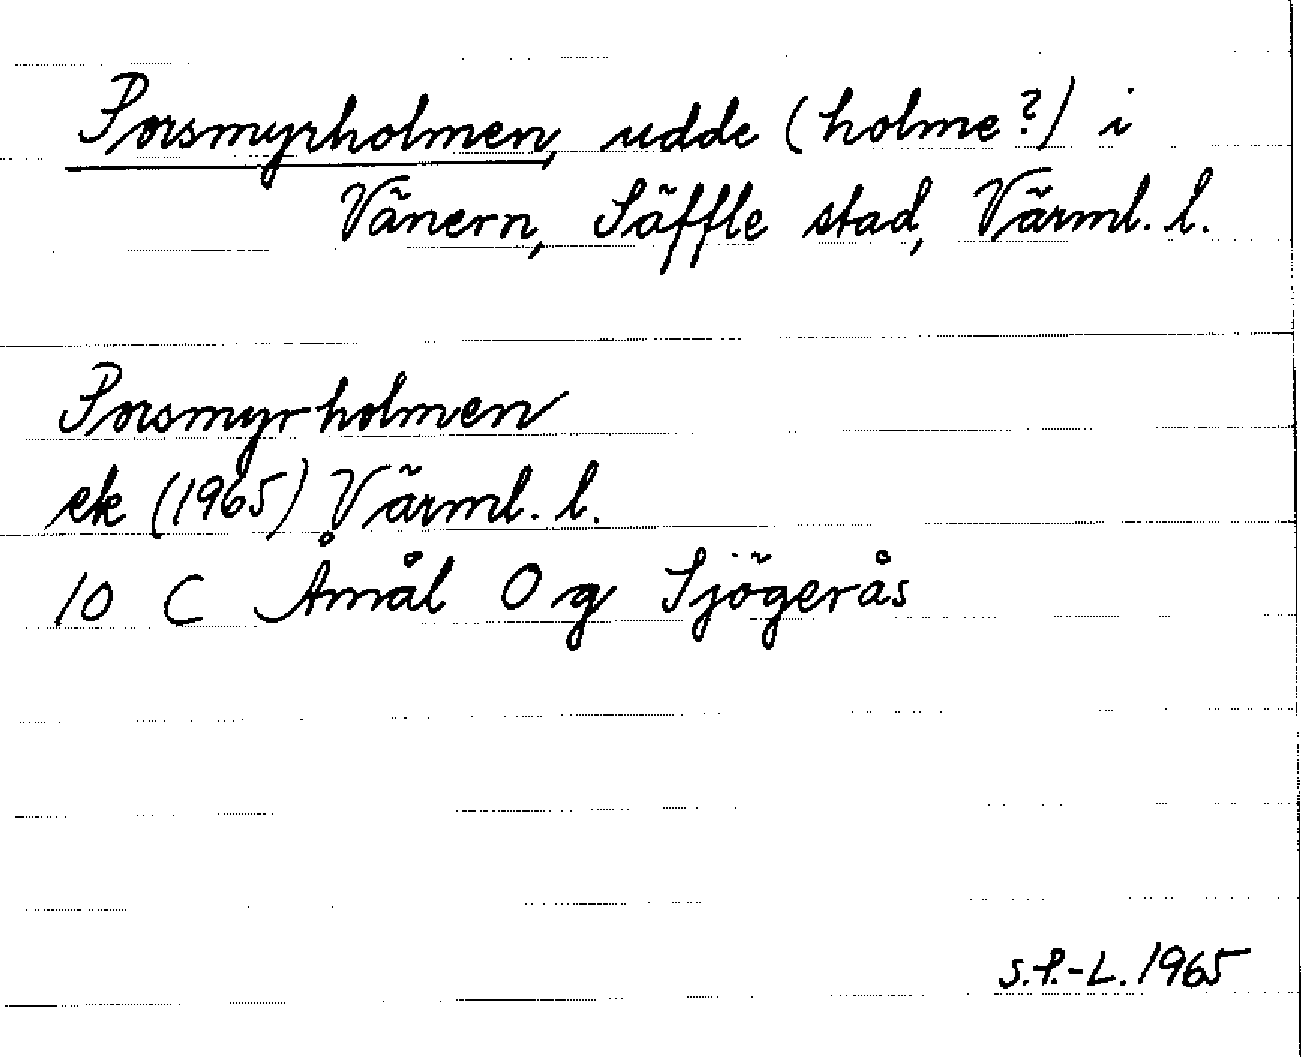 Porsmyrholmen, udde (holme?) i
Vänern, Säffle stad, Värml. l.
Porsmyrholmen
ek (1965) Värml. l.
10 C Åmål O g Sjögerås
S.P.-L. 1965